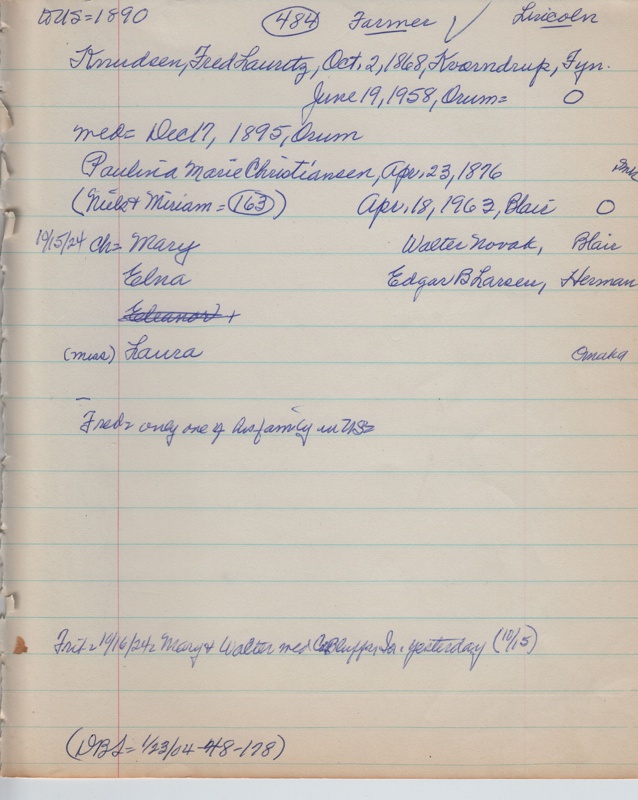 to US=1890 484 Farmer ✓ Lincoln
Knudsen, Fred Lauritz, Oct. 2, 1868, Kværndrup, Fyn.
June 19, 1958, Orum= O
med= Dec 17, 1895, Orum
Paulina Marie Christiansen, Apr. 23, 1876
(Niels + Miriam = 163) Apr. 18, 1963, Blair O
10/15/24 ch= Mary Walter Novak, Blair
Elna Edgar B Larsen, Herman
Eleanor +
(miss) Laura Omaha
Fred= only one of his family in US=
10/16/24= Mary + Walter med Co Bluffs, Ia. yesterday (10/15)
(DBS= 1/23/04-48-178)